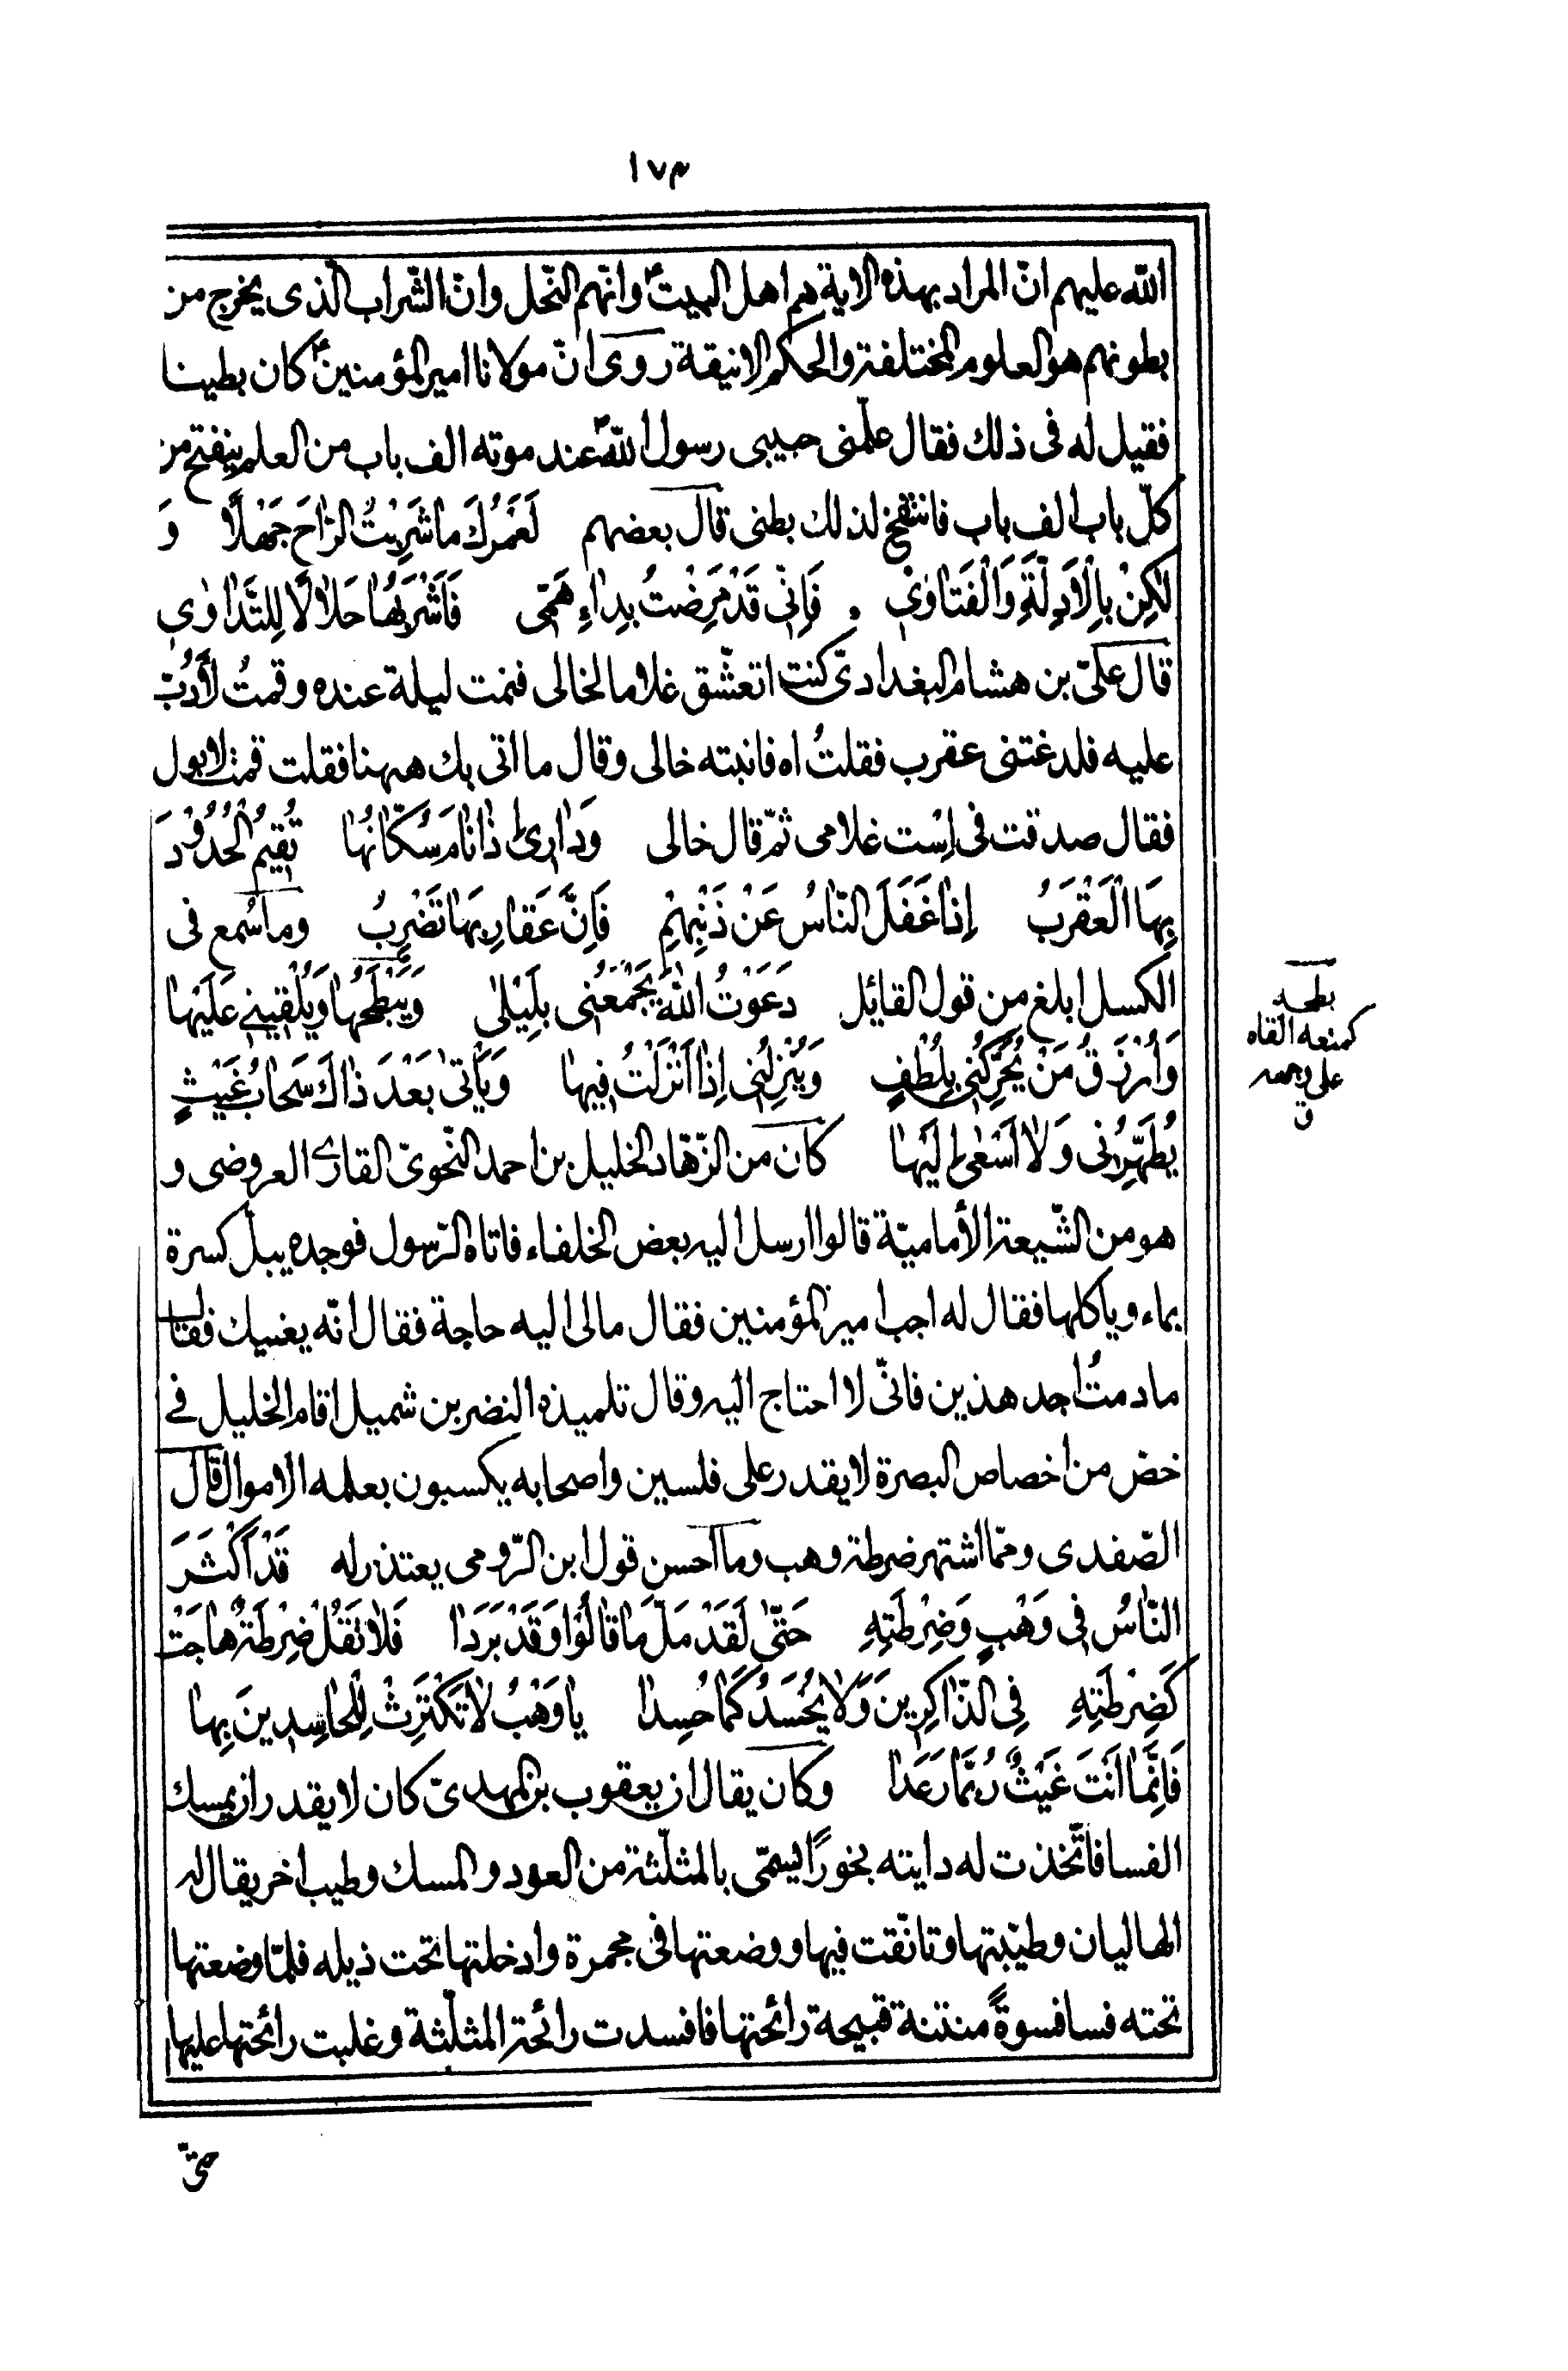 ١٧٣
الله عليهم انّ المراد بهذه الاية هم اهل البيت ع وانّهم النّحل وانّ الشّراب الّذى يخرج من
بطونهم هو العلوم المختلفة والحكم الانيقة روى انّ مولانا امير المؤمنين ع كان بطينا
فقيل له فى ذلك فقال علّمنى حبيبى رسول الله ص عند موته الف باب من العلم ينفتح من
كلّ باب الف باب فانتفخ لذلك بطنى قال بعضهم لَعَمْرُكَ مَا شَرِبْتُ الرّٰاحَ جَهْلًا وَ
لٰكِنْ بِالْاَدِلَّةِ وَالْفَتٰاوٰى فَاِنّى قَدْ مَرِضْتُ بِدٰاءِ هَمّى فَاَشْرَبُهٰا حَلٰالًا لِلتَّدٰاوٰى
قال علىّ بن هشام البغدادىّ كنت اتعشّق غلاما لخالى فنمت ليلة عنده وقمتُ لأَدُبّ
عليه فلدغتنى عقرب فقلتُ اه فانبته خالى وقال ما اتى بك ههنا فقلت قمت لابول
فقال صدقت فى اِسْت غلامى ثمّ قال خالى وَدٰارى اِذٰا نٰامَ سُكّٰانُهٰا تُقِيمُ الْحُدُودَ
بِهَا الْعَقْرَبُ اِذٰا غَفَلَ النّٰاسُ عَنْ ذَنْبِهِمْ فَاِنَّ عَقٰارِبَهٰا تَضْرِبُ وما سُمع فى
الكسل ابلغ من قول القايل دَعَوْتُ اللهَ يَجْمَعُنى بِلَيْلٰى وَيَبْطَحُهٰا وَيُلْقِينى عَلَيْهٰا
وَاُرْزَقُ مَنْ يُحَرِّكُنى بِلُطْفٍ وَيُنْزِلُنى اِذٰا اَنْزَلْتُ فِيهٰا وَيَأْتى بَعْدَ ذٰاكَ سَحٰابُ غَيْثٍ
يُطَهِّرُنى وَلٰا اَسْعٰى اِلَيْهٰا كان من الزّهّاد الخليل بن احمد النّحوىّ القارى العروضى و
هو من الشّيعة الأماميّة قالوا ارسل اليه بعض الخلفاء فاتاه الرّسول فوجده يبلّ كسرة
بماء وياكلها فقال له اجب امير المؤمنين فقال مالى اليه حاجة فقال انّه يغنيك فقال
ما دمتُ اجد هذين فانّى لا احتاج اليه وقال تلميذه النضر بن شميل اقام الخليل فى
خصّ من اخصاص البصرة لا يقدر على فلسين واصحابه يكسبون بعلمه الاموال قال
الصّفدى وممّا اشتهر ضرطة وهب وما احسن قول ابن الرّومى يعتذر له قَدْ اَكْثَرَ
النّٰاسُ فى وَهْبٍ وَضِرْطَتِهِ حَتّٰى لَقَدْ مَلَّ مَا قٰالُوٰا وَقَدْ بَرَدٰا فَلٰا تَقُلْ ضِرْطَةٌ هٰاجَتْ
كَضِرْطَتِهِ فِى الذّٰاكِرِينَ وَلٰا يُحْسَدُ كَمٰا حُسِدٰا يٰا وَهْبُ لٰا تَكْتَرِثْ لِلْحٰاسِدِينَ بِهٰا
فَاِنَّمٰا اَنْتَ غَيْثٌ رُبَّمٰا رَعَدٰا وكان يقال ان يعقوب بن المهدىّ كان لا يقدر ان يمسك
الفسا فاتّخذت له دايته بخورًا يسمّى بالمثلّثة من العود والمسك وطيب اخر يقال له
الهاليان وطيّبتها وتانّقت فيها ووضعتها فى مجمرة وادخلتها تحت ذيله فلمّا وضعتها
تحته فسا فسوةً منتنة قبيحة رائحتها فافسدت رائحة المثلّثة وغلبت رائحتها عليها
بطحه
كمنعه القاه
على وجهه
ق
حتّى